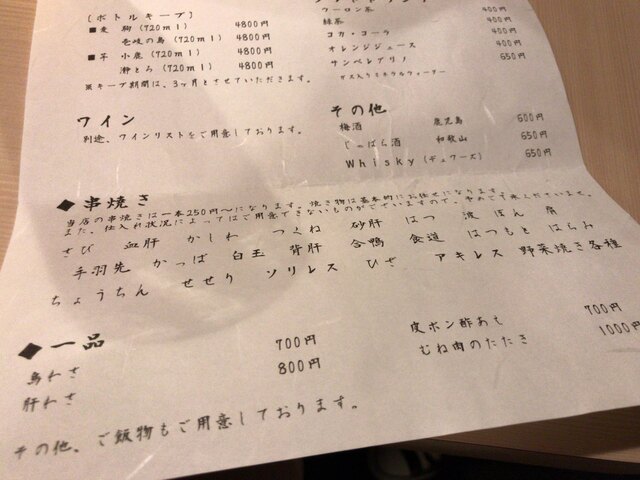 [ボトルキープ]
■麦 駒(720ml) 4800円
壱岐の島(720ml) 4800円
■芋 小鹿(720ml) 4800円
瀞とろ(720ml) 4800円
※キープ期間は、3ヶ月とさせていただきます。
ウーロン茶 400円
緑茶 400円
コカ・コーラ 400円
オレンジジュース 400円
サンペレグリノ 650円
ガス入りミネラルウォーター
ワイン
別途、ワインリストをご用意しております。
その他
梅酒 鹿児島 600円
じゃばら酒 和歌山 650円
Whisky(デュワーズ) 650円
◆串焼き
当店の串焼きは一本250円〜になります。焼き物は基本的にお任せになります。
また、仕入れ状況によってはご用意できないものがございますので、予めご了承くださいませ。
さび 血肝 かしわ つくね 砂肝 はつ 波 ぼん 肩
手羽先 かっぱ 白玉 背肝 合鴨 食道 はつもと はらみ
ちょうちん せせり ソリレス ひざ アキレス 野菜焼き各種
◆一品
鳥わさ 700円
肝わさ 800円
皮ポン酢あえ 700円
むね肉のたたき 1000円
その他、ご飯物もご用意しております。